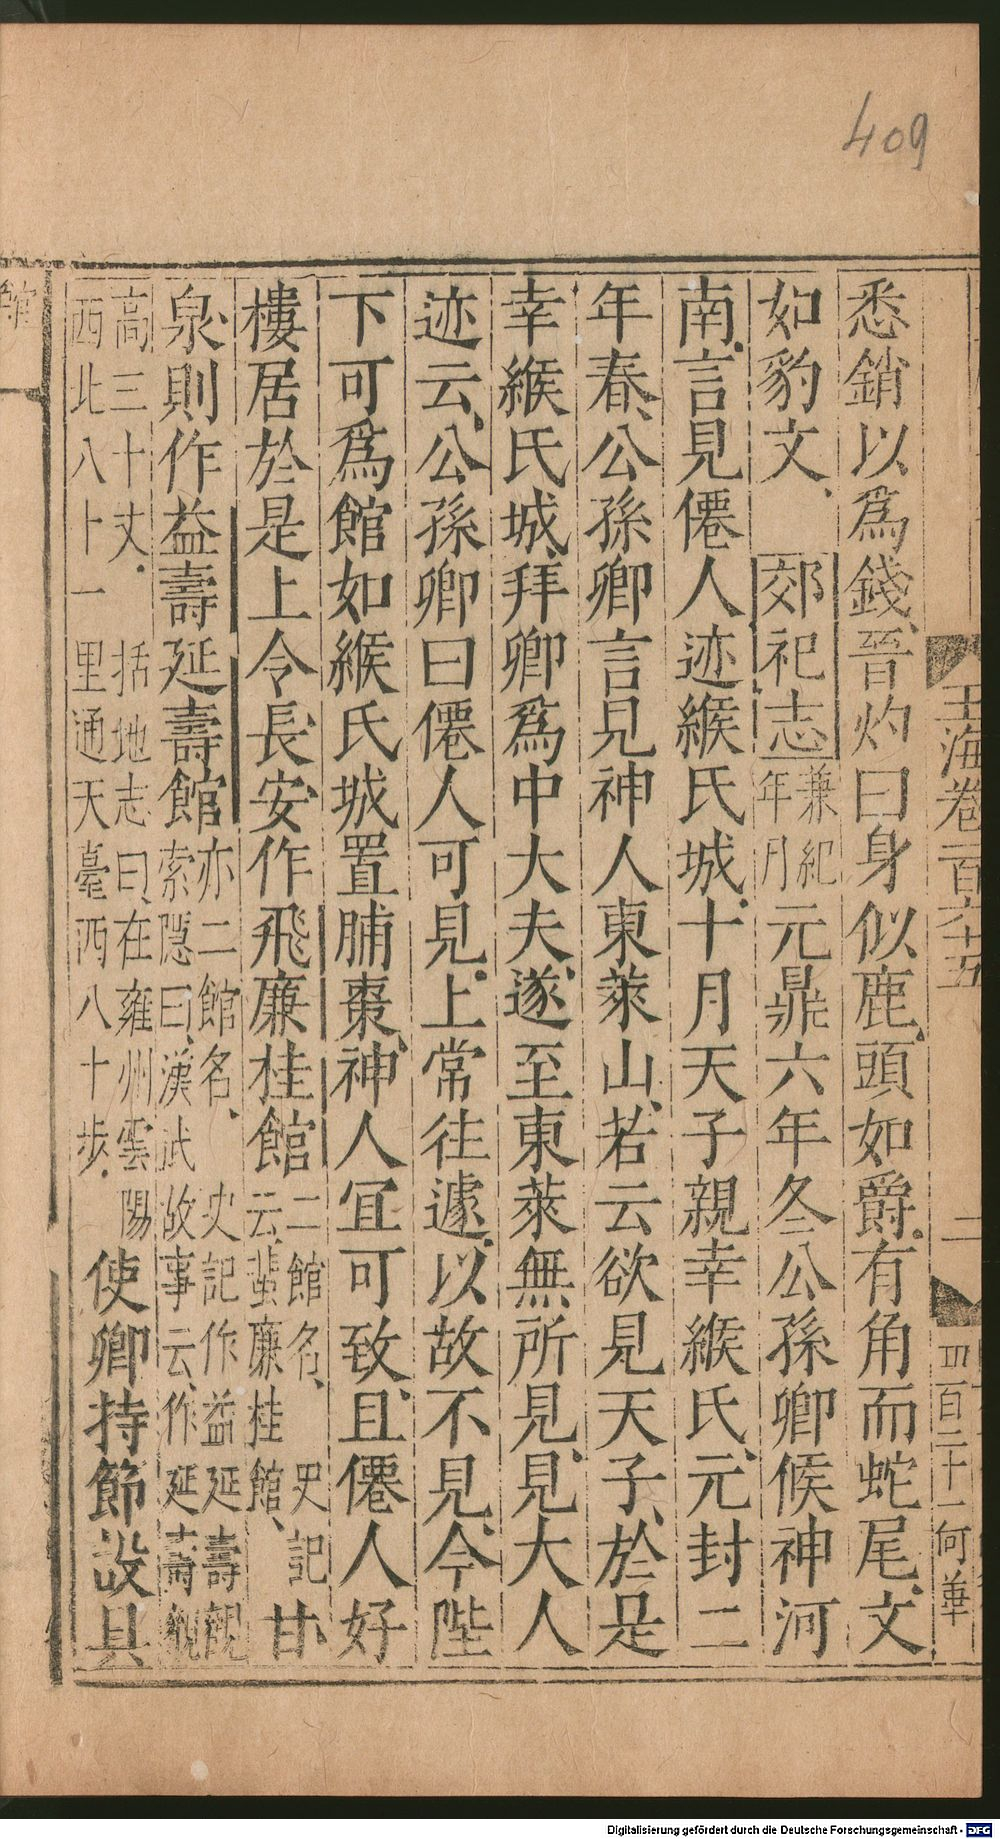 409
玉海卷一百六十五
二
四百二十一何華
悉銷以爲錢晉灼曰身似鹿頭如爵有角而蛇尾文
如豹文郊祀志兼紀年月元鼎六年冬公孫卿候神河
南言見僊人迹緱氏城十月天子親幸緱氏元封二
年春公孫卿言見神人東萊山若云欲見天子於是
幸緱氏城拜卿爲中大夫遂至東萊無所見見大人
迹云公孫卿曰僊人可見上常往遽以故不見今陛
下可爲館如緱氏城置脯棗神人宜可致且僊人好
樓居於是上令長安作飛廉桂館二館名史記云蜚廉桂館甘
泉則作益壽延壽館亦二館名索隱曰漢武故事云作延壽觀史記作益延壽觀
高三十丈括地志曰在雍州雲陽西北八十一里通天臺西八十步使卿持節設具
Digitalisierung gefördert durch die Deutsche Forschungsgemeinschaft - DFG